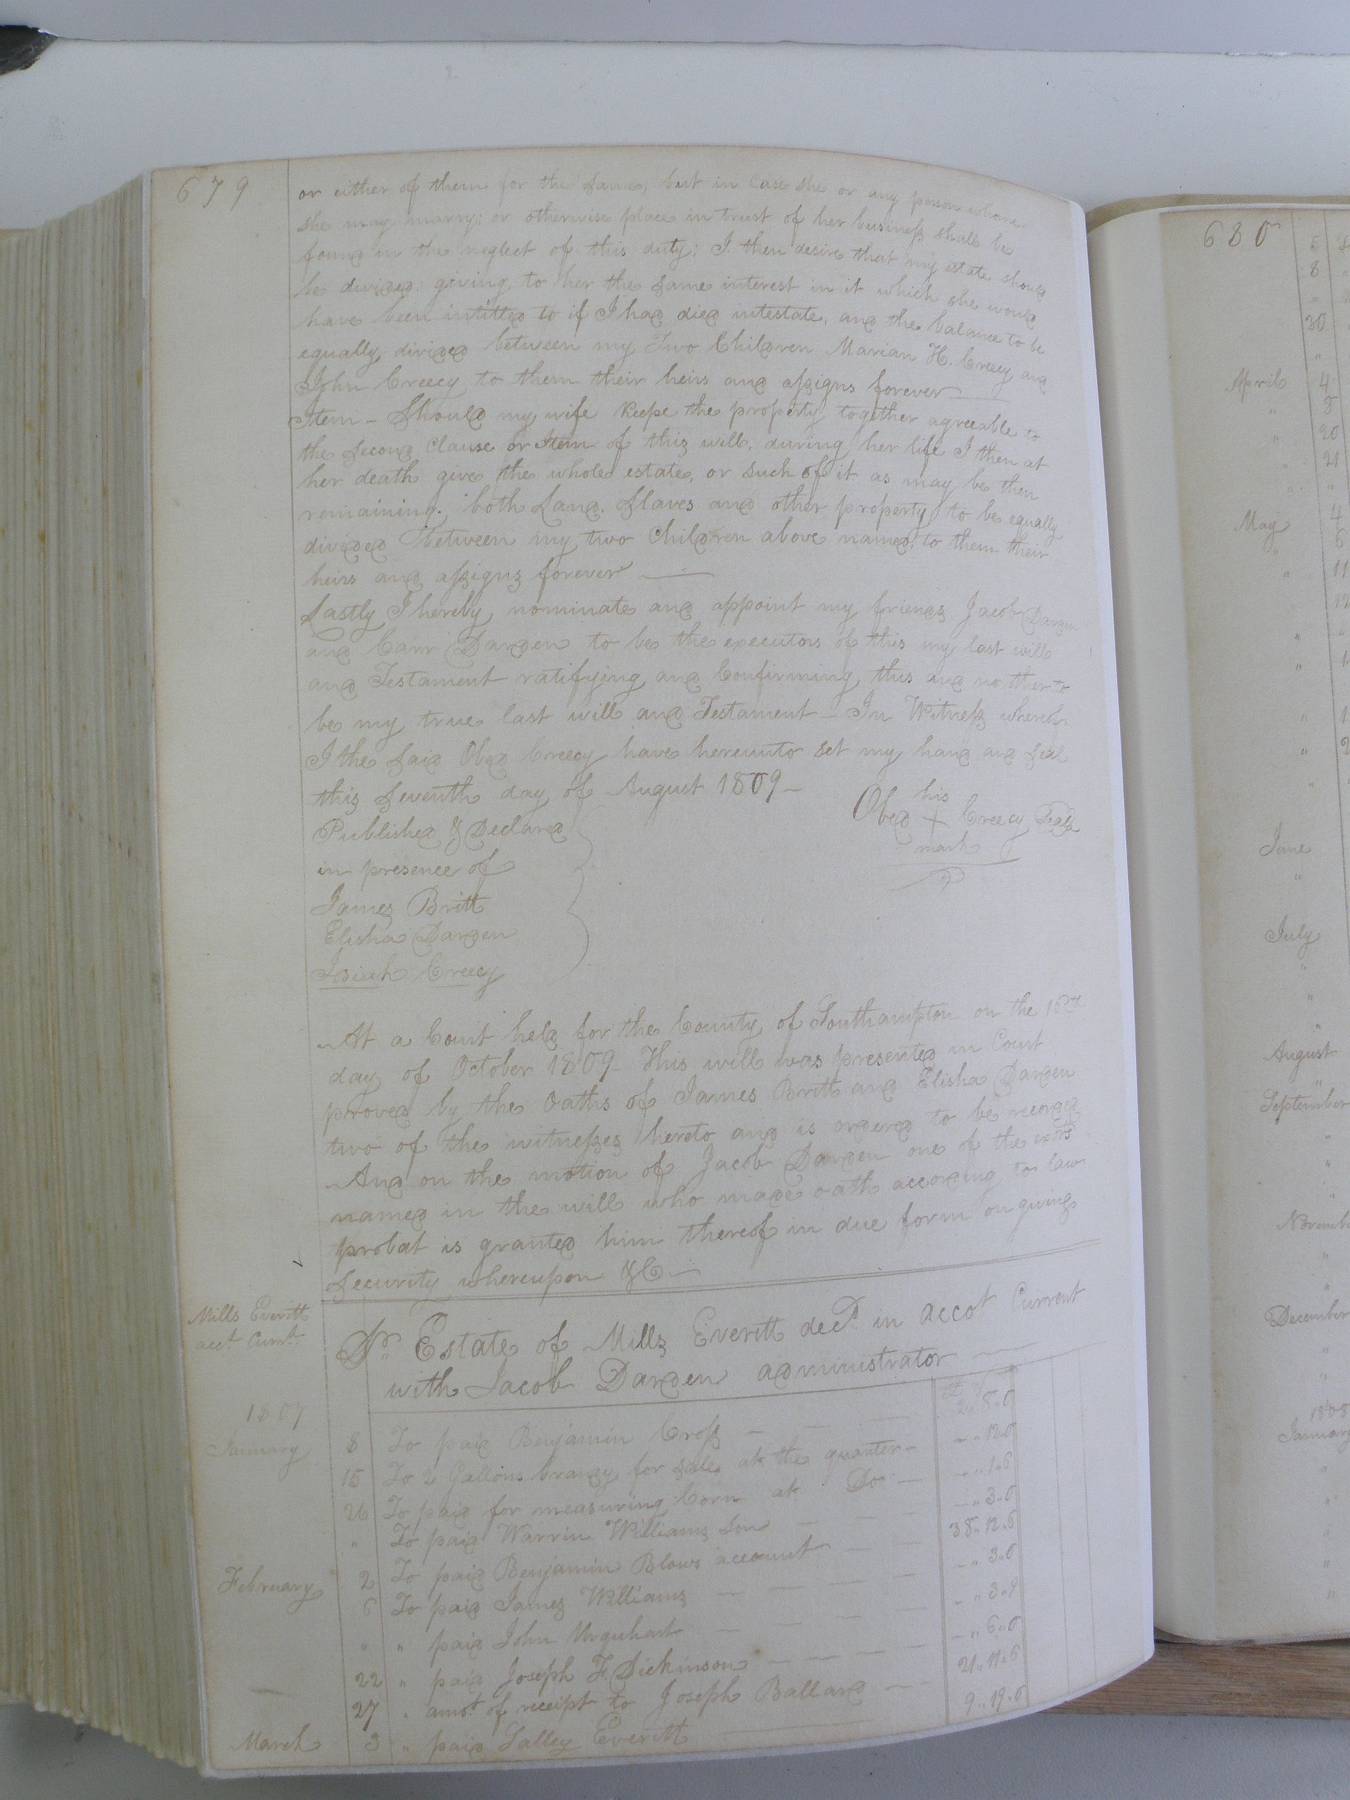 679
or either of them for the same, but in case she or any person whom
she may marry; or otherwise place in trust of her business shall be
found in the neglect of this duty; I then desire that my estate should
be divided giving to her the same interest in it which she would
have been intitled to if I had died intestate, and the balance to be
equally divided between my Two Children Marian H. Creecy and
John Creecy to them their heirs and assigns forever
Item - Should my wife keepe the property together agreeable to
the second Clause or Item of this will, during her life I then at
her death give the whole estate, or such of it as may be then
remaining, both Land, Slaves and other property to be equally
divided between my two Children above named, to them their
heirs and assigns forever
Lastly I hereby nominate and appoint my friends Jacob Darden
and Carr Darden to be the executors of this my last will
and Testament ratifying and Confirming this and no other to
be my true last will and Testament - In Witness whereof
I the said Obed Creecy have hereunto set my hand and seal
this seventh day of August 1809 -
his
Obed + Creecy Seal
mark
Published & Declared
in presence of
James Britt
Elisha Darden
Josiah Creecy
At a Court held for the County of Southampton on the 16th
day of October 1809 - This will was presented in Court
proved by the oaths of James Britt and Elisha Darden
two of the witnesses hereto and is ordered to be record
And on the motion of Jacob Darden one of the exors
named in the will who made oath according to law
probat is granted him thereof in due form on giving
Security whereupon &C
Mills Everitt
acct Curnt
Dr. Estate of Mills Everitt decd in accot Current
with Jacob Darden administrator
1807
January 8 To paid Benjamin Cross 2..8.0
15 To 2 Gallons brandy for sale at the quarter - - .. 12.0
26 To paid for measuring Corn at Do - .. 1.6
" To paid Warrin Williams Son - .. 3.0
February 2 To paid Benjamin Blows account 38..12.6
6 To paid James Williams - .. 3.0
" " paid John Urquhart - .. 3.9
22 " paid Joseph F Dickinson - .. 6.0
27 " amot of receipt to Joseph Ballard 21..11.6
March 3 " paid Salley Everitt 9..19.0
680
5
8
"
30
"
April 4
" 8
" 20
" 21
" "
May 4
" 6
" 11
June
"
July
"
"
"
August
"
September
"
"
"
"
"
December
"
"
1808
January
"
"
"
"
"